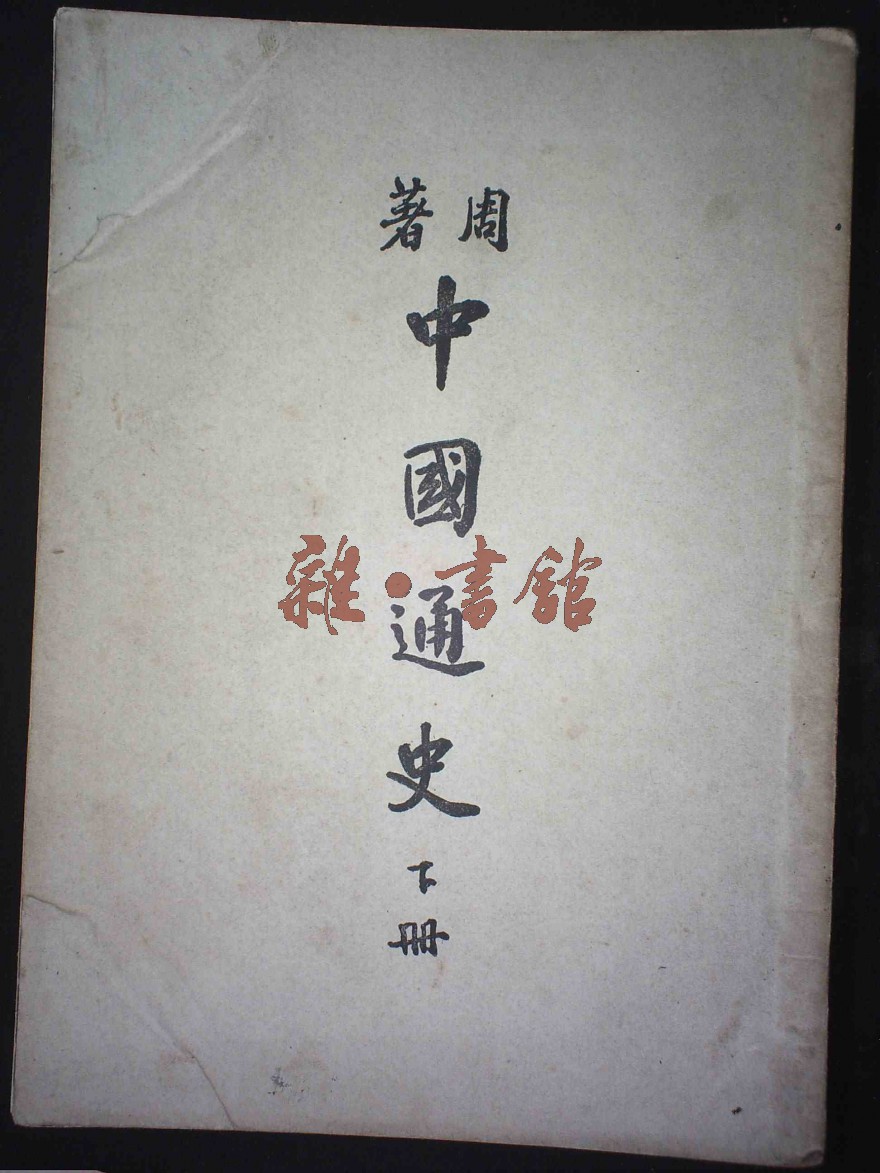 周著
中國通史
下册
雜·書館